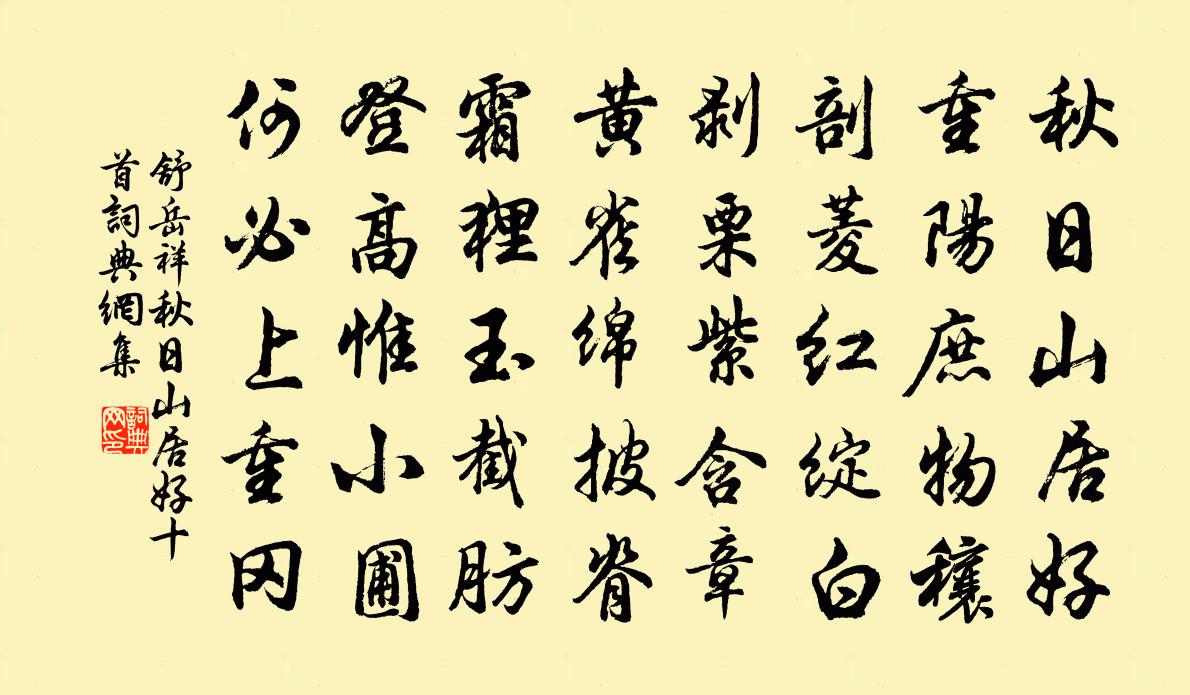 秋日山居好
重陽庶物穰
剖菱紅綻白
剥栗紫含章
黄雀綿披脊
霜貍玉截肪
登高惟小圃
何必上重冈
舒岳祥秋日山居好十
首詞典網集
詞典网印